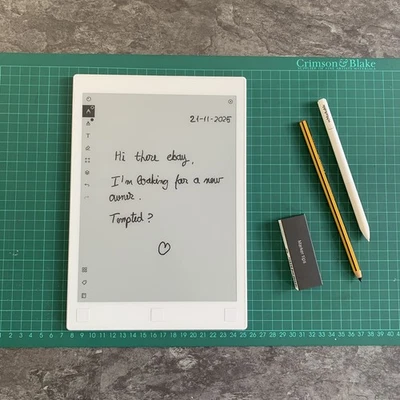 Crimson&Blake
21-11-2025
Hi there ebay,
I'm looking for a new
owner.
Tempted?
Marker tips
0 1 2 3 4 5 6 7 8 9 10 11 12 13 14 15 16 17 18 19 20 21 22 23 24 25 26 27 28 29 30 31 32 33 34 35 36 37 38 39 40 41 42